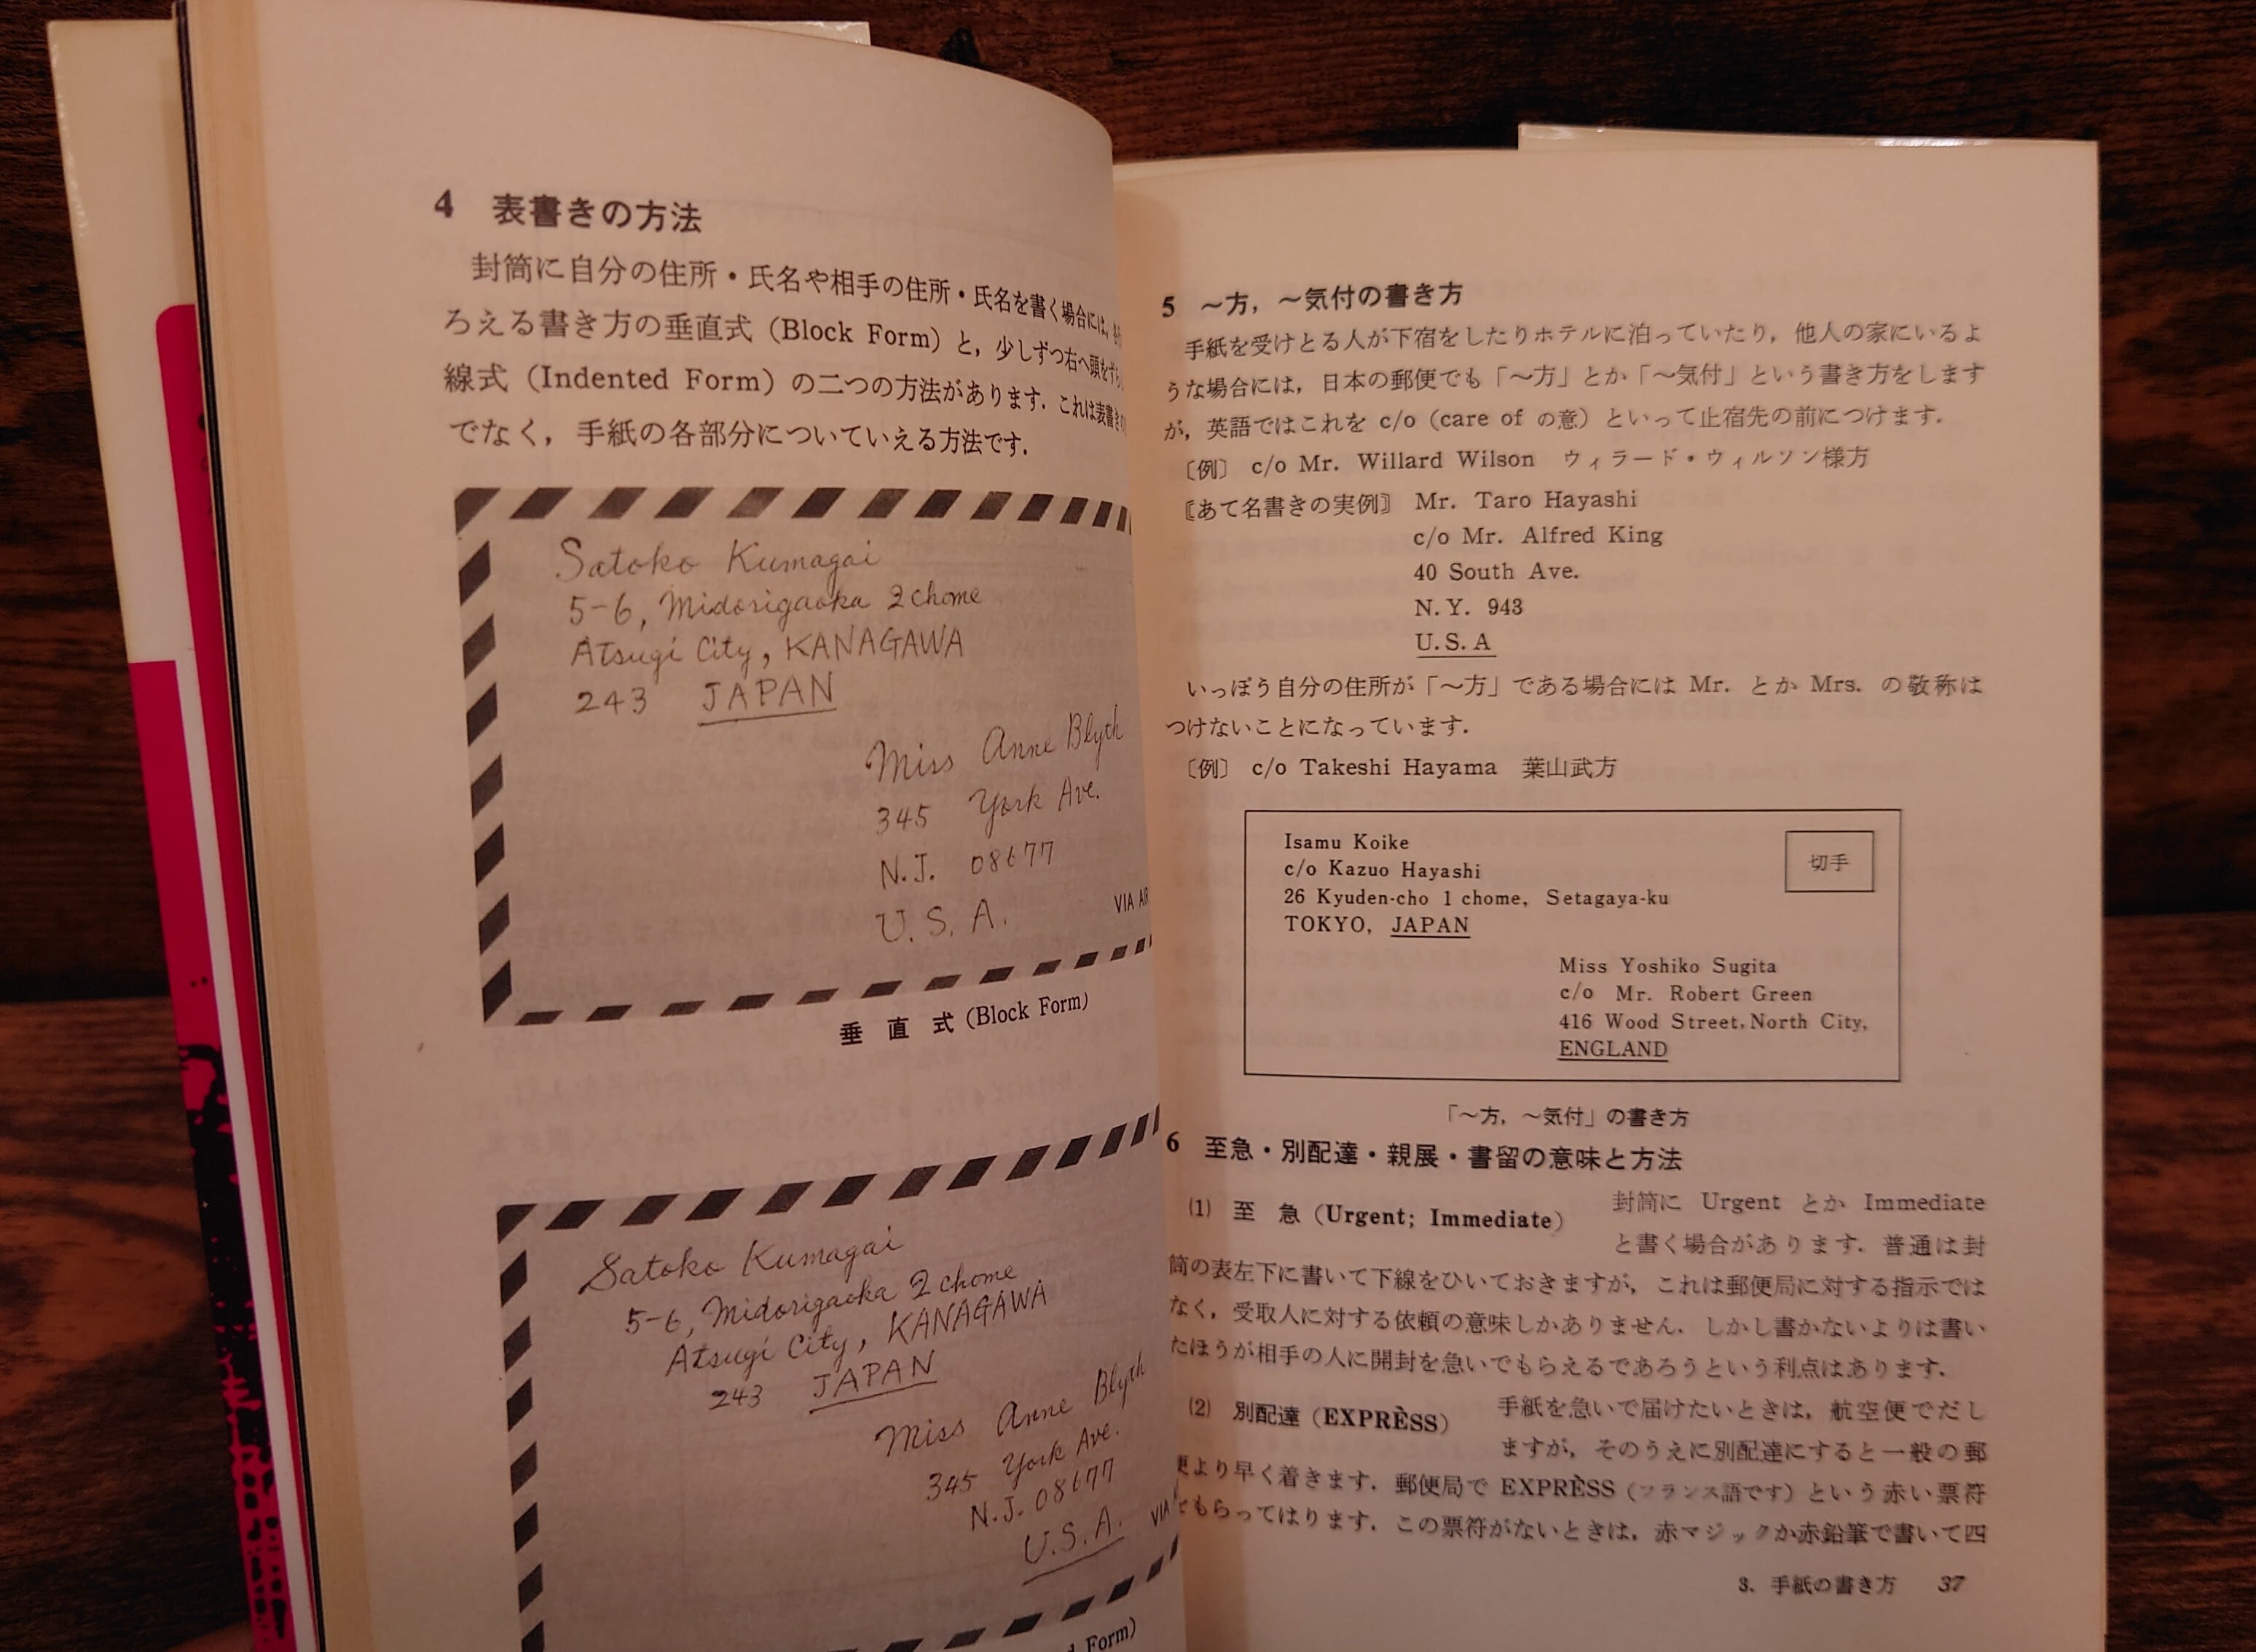 4 表書きの方法
封筒に自分の住所・氏名や相手の住所・氏名を書く場合には,
ろえる書き方の垂直式（Block Form）と，少しずつ右へ頭をずら
線式（Indented Form）の二つの方法があります．これは表書きの
でなく，手紙の各部分についていえる方法です．
Satoko Kumagai
5-6, Midorigaoka 2 chome
Atsugi City, KANAGAWA
243 JAPAN
Miss Anne Blyth
345 York Ave.
N.J. 08677
U.S.A.
VIA AIR
垂直式 (Block Form)
Satoko Kumagai
5-6, Midorigaoka 2 chome
Atsugi City, KANAGAWA
243 JAPAN
Miss Anne Blyth
345 York Ave.
N.J. 08677
U.S.A.
VIA
Form)
5 〜方，〜気付の書き方
手紙を受けとる人が下宿をしたりホテルに泊っていたり，他人の家にいるよ
うな場合には，日本の郵便でも「〜方」とか「〜気付」という書き方をします
が，英語ではこれを c/o（care of の意）といって止宿先の前につけます．
〔例〕 c/o Mr. Willard Wilson ウィラード・ウィルソン様方
〘あて名書きの実例〙 Mr. Taro Hayashi
c/o Mr. Alfred King
40 South Ave.
N.Y. 943
U.S.A
いっぽう自分の住所が「〜方」である場合には Mr. とか Mrs. の敬称は
つけないことになっています．
〔例〕 c/o Takeshi Hayama 葉山武方
Isamu Koike
c/o Kazuo Hayashi
26 Kyuden-cho 1 chome, Setagaya-ku
TOKYO, JAPAN
切手
Miss Yoshiko Sugita
c/o Mr. Robert Green
416 Wood Street, North City,
ENGLAND
「〜方，〜気付」の書き方
6 至急・別配達・親展・書留の意味と方法
(1) 至急（Urgent; Immediate） 封筒に Urgent とか Immediate
と書く場合があります．普通は封
筒の表左下に書いて下線をひいておきますが，これは郵便局に対する指示では
なく，受取人に対する依頼の意味しかありません．しかし書かないよりは書い
たほうが相手の人に開封を急いでもらえるであろうという利点はあります．
(2) 別配達（EXPRÈSS） 手紙を急いで届けたいときは，航空便でだし
ますが，そのうえに別配達にすると一般の郵
便より早く着きます．郵便局で EXPRÈSS（フランス語です）という赤い票符
をもらってはります．この票符がないときは，赤マジックか赤鉛筆で書いて四
3. 手紙の書き方 37